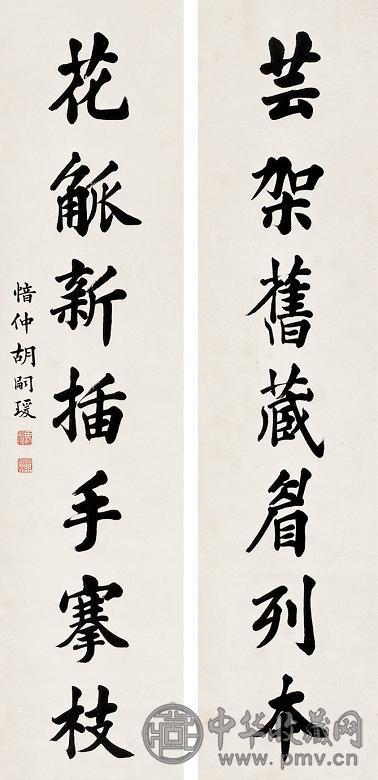 芸架舊藏眉列本
花觚新插手搴枝
愔仲胡嗣瑗
中华收藏网
www.pmv.cn